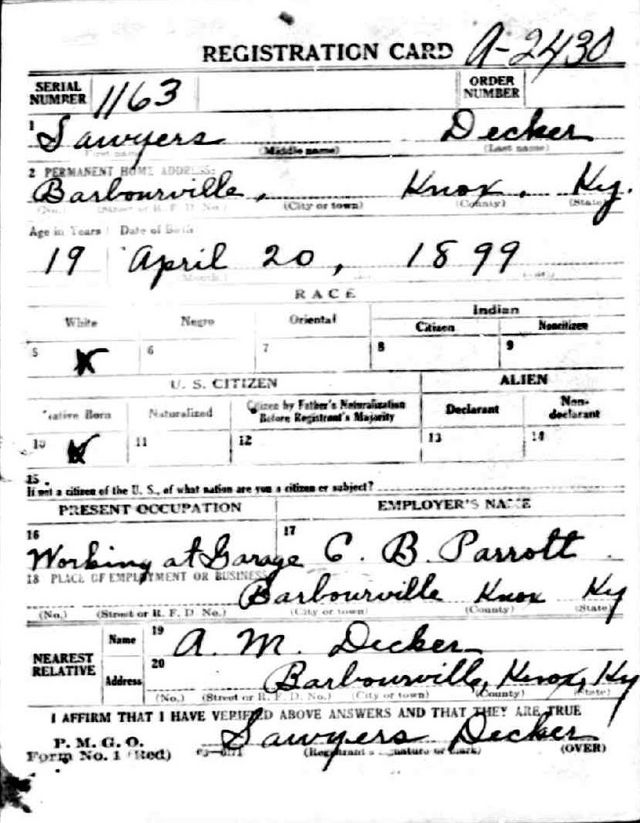 REGISTRATION CARD A-2430
SERIAL NUMBER 1163 ORDER NUMBER
1 Sawyers Decker
(First name) (Middle name) (Last name)
2 PERMANENT HOME ADDRESS:
Barbourville, Knox, Ky.
(No.) (Street or R. F. D. No.) (City or town) (County) (State)
Age in Years Date of Birth
19 April 20, 1899
RACE
White Negro Oriental Indian
Citizen Noncitizen
5 X 6 7 8 9
U. S. CITIZEN ALIEN
Native Born Naturalized Citizen by Father's Naturalization Before Registrant's Majority Declarant Non-declarant
10 X 11 12 13 14
15.
If not a citizen of the U. S., of what nation are you a citizen or subject?
PRESENT OCCUPATION EMPLOYER'S NAME
16 17
Working at Garage C. B. Parrott
18 PLACE OF EMPLOYMENT OR BUSINESS
Barbourville Knox Ky
(No.) (Street or R. F. D. No.) (City or town) (County) (State)
NEAREST RELATIVE Name 19 A. M. Decker
Address 20 Barbourville, Knox, Ky
(No.) (Street or R. F. D. No.) (City or town) (County) (State)
I AFFIRM THAT I HAVE VERIFIED ABOVE ANSWERS AND THAT THEY ARE TRUE
P. M. G. O.
Form No. 1 (Red) Sawyers Decker
(Registrant's signature or mark) (OVER)